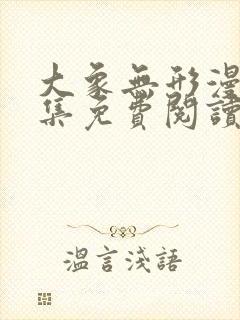 大象無形漫
集免費閱讀
溫言淺語